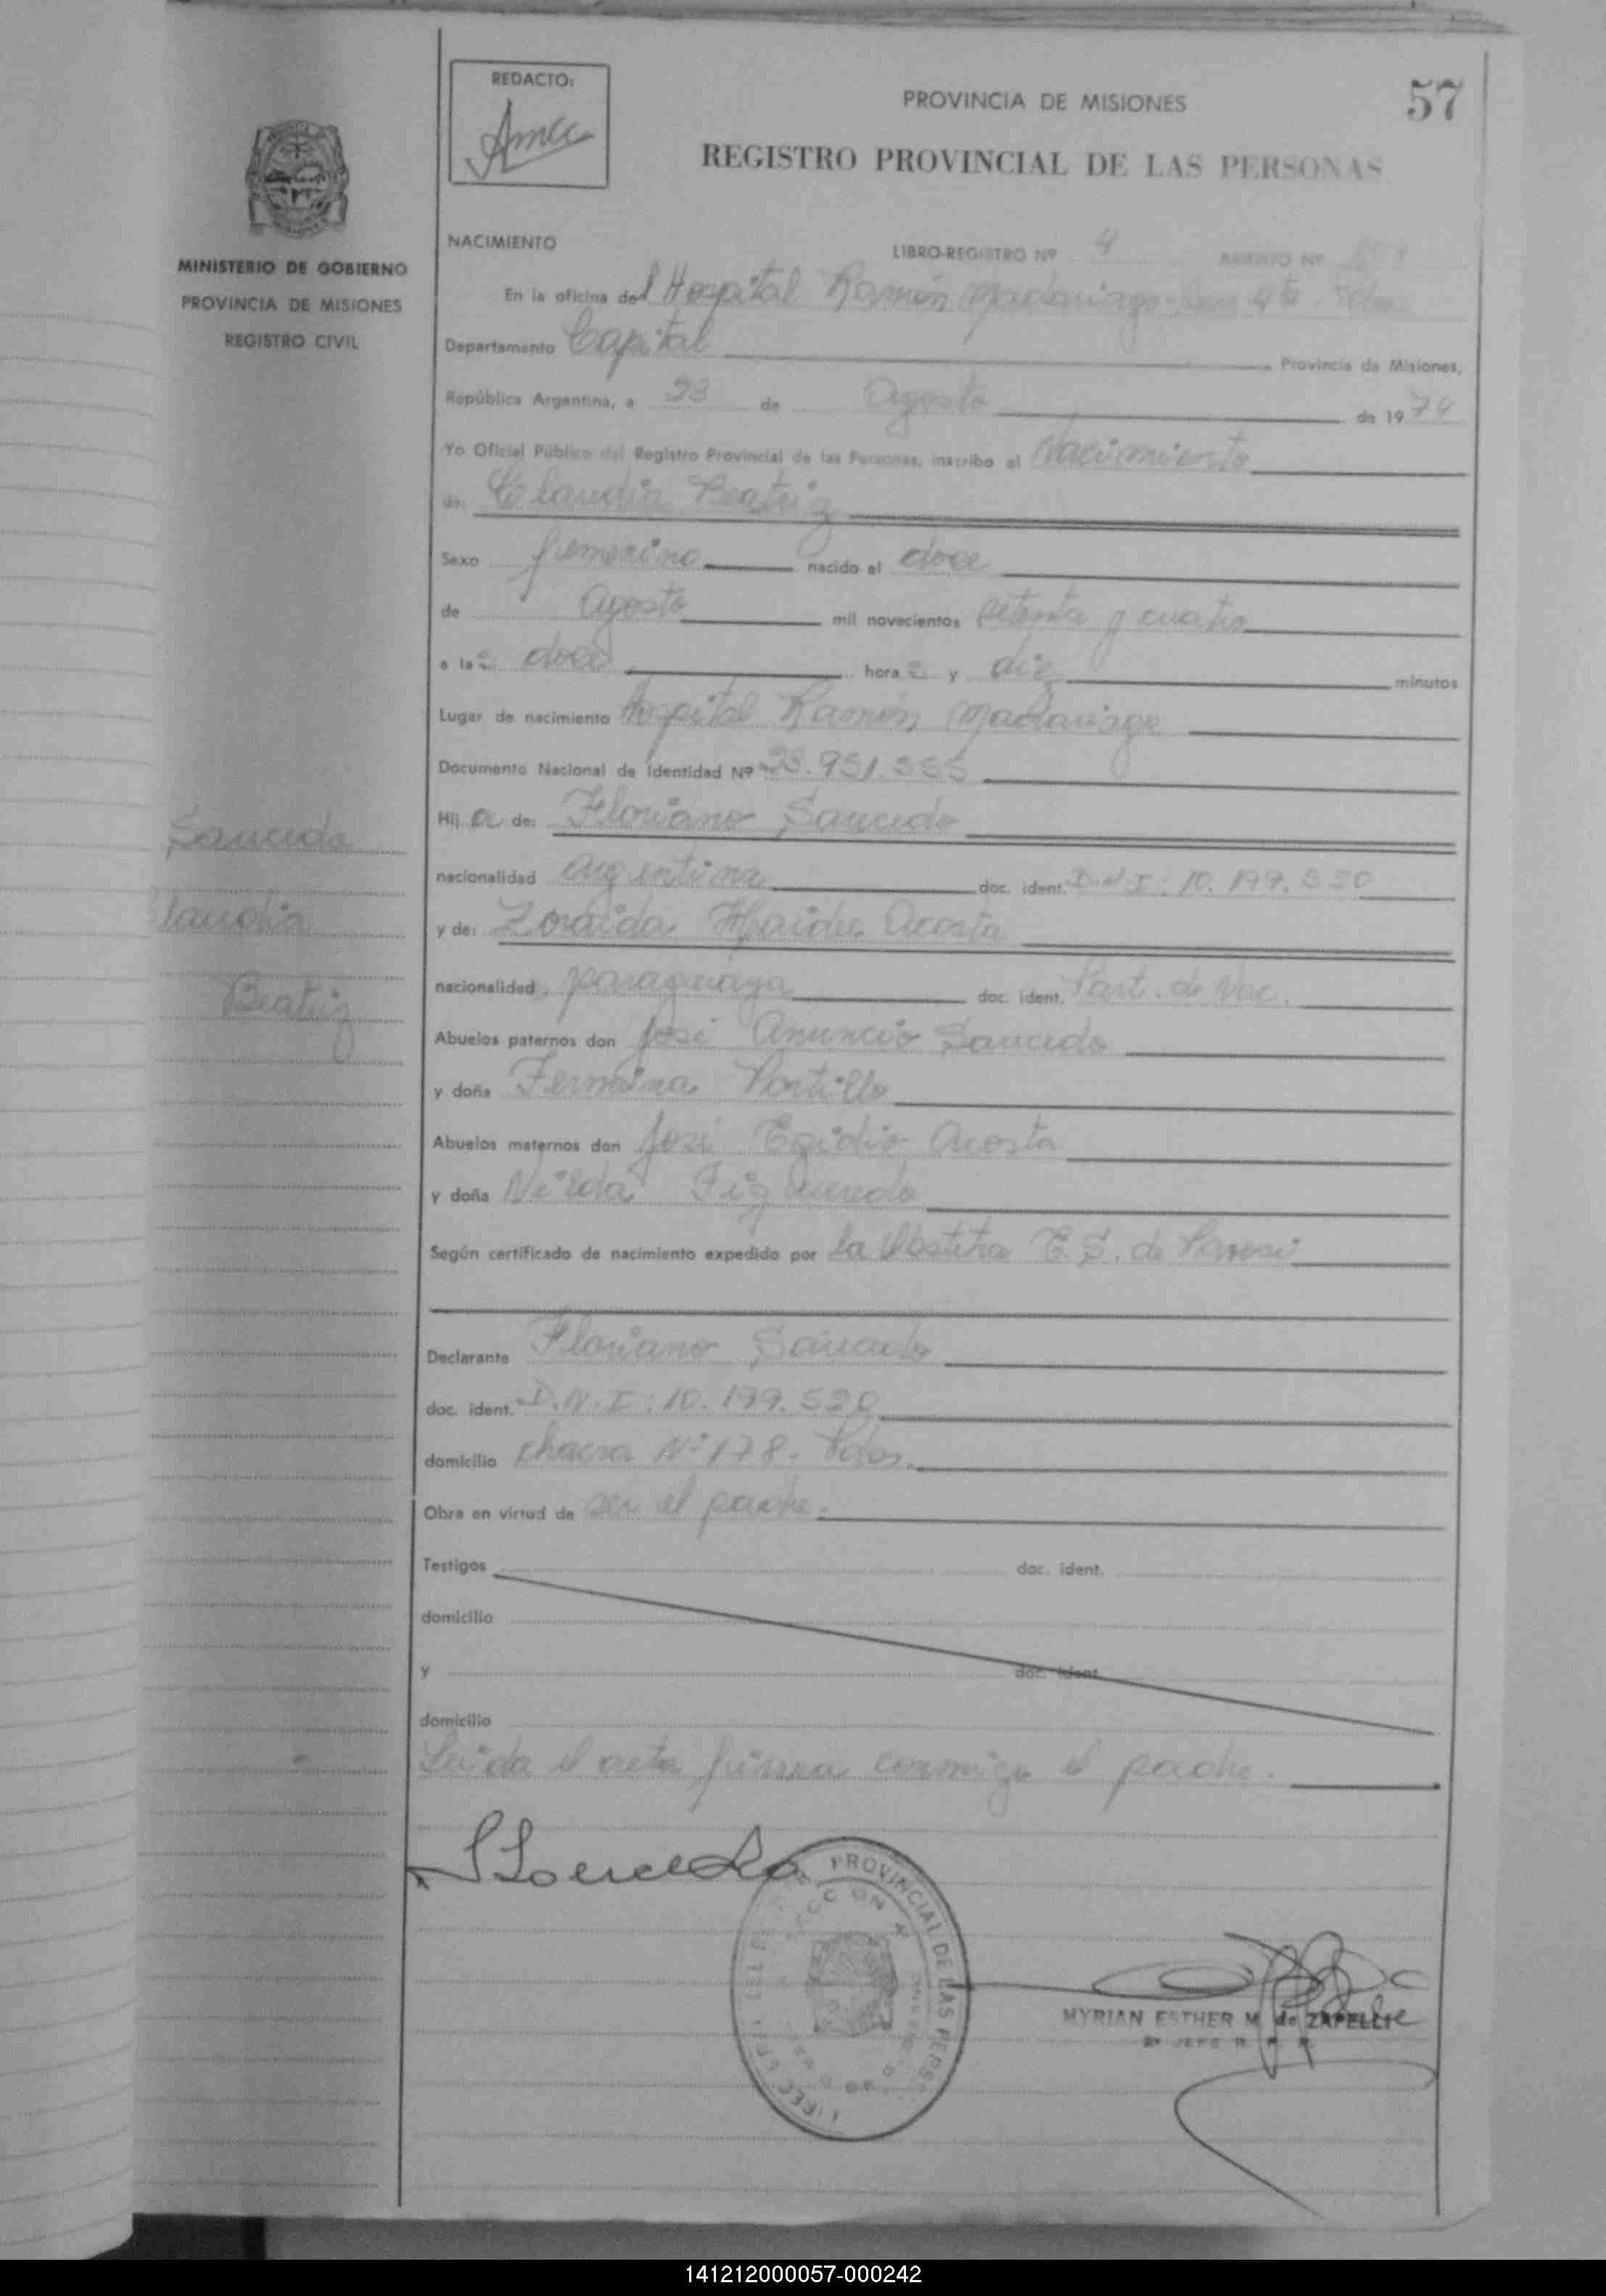 REDACTO:
PROVINCIA DE MISIONES
57
REGISTRO PROVINCIAL DE LAS PERSONAS
MINISTERIO DE GOBIERNO
PROVINCIA DE MISIONES
REGISTRO CIVIL
NACIMIENTO LIBRO-REGISTRO Nº 4 ASIENTO Nº
En la oficina del Hospital Ramón Madariaga
Departamento Capital Provincia de Misiones,
República Argentina, a 23 de Agosto de 1974
Yo Oficial Público del Registro Provincial de las Personas, inscribo el Nacimiento
de: Claudia Beatriz
Sexo femenino nacido el doce
de Agosto mil novecientos setenta y cuatro
a las doce horas y diez minutos
Lugar de nacimiento Hospital Ramón Madariaga
Documento Nacional de Identidad Nº 23.951.
Hija de: Floriano Saucedo
nacionalidad argentina doc. ident. D.N.I: 10.199.520
y de: Zoraida Haidee Acosta
nacionalidad paraguaya doc. ident. Part. de Nac.
Abuelos paternos don José Anuncio Saucedo
y doña Fermina Portillo
Abuelos maternos don José Egidio Acosta
y doña Nilda Figueredo
Según certificado de nacimiento expedido por la Obstetra E. S. de
Declarante Floriano Saucedo
doc. ident. D.N.I: 10.199.520
domicilio chacra Nº 178- Pdas.
Obra en virtud de ser el padre.
Testigos doc. ident.
domicilio
y doc. ident.
domicilio
Leida el acta firma conmigo el padre.
Saucedo
Claudia
Beatriz
PROVINCIAL DE LAS PERS
MYRIAN ESTHER M. de ZAPELLI
2º JEFE R. P. P.
141212000057-000242